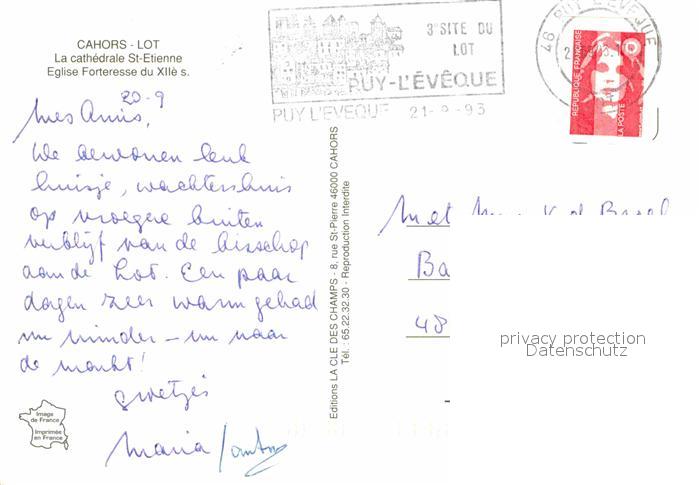 CAHORS - LOT
La cathédrale St-Etienne
Eglise Forteresse du XIIè s.
20-9
Mes Amis,
We bewonen leuk
huisje, wachtershuis
op vroegere buiten
verblijf van de bisschop
aan de Lot. Een paar
dagen zeer warm gehad
nu minder – nu naar
de markt!
groetjes
Maria
Image
de France
Imprimée
en France
Editions LA CLE DES CHAMPS - 8, rue St-Pierre 46000 CAHORS
Tél.: 65.22.32.30 - Reproduction Interdite
3e SITE DU
LOT
PUY-L'ÉVÊQUE
PUY L'EVEQUE 21-9-93
46 PUY L'EVEQUE
REPUBLIQUE FRANÇAISE
LA POSTE
Ba
48
privacy protection
Datenschutz